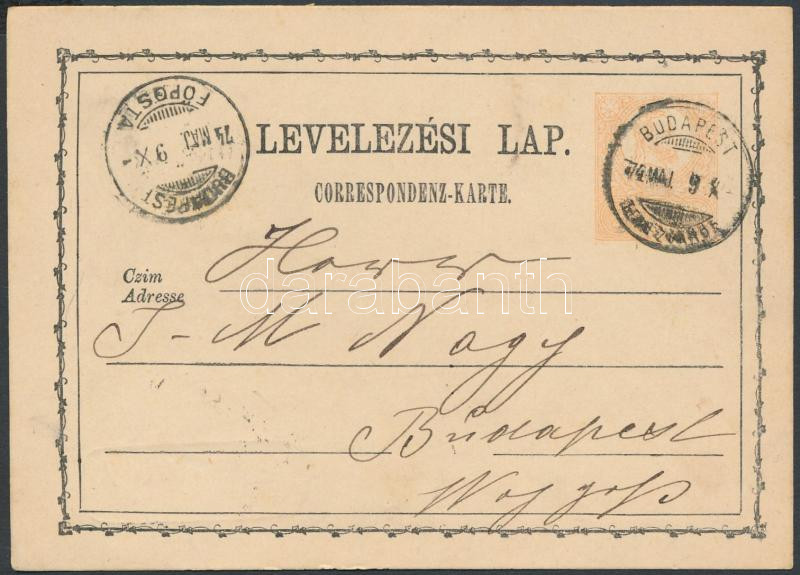 BUDAPEST
74 MAJ. 9
BUDAPEST
74 MAJ. 9 X
FŐPOSTA
LEVELEZÉSI LAP.
CORRESPONDENZ-KARTE.
Czim
Adresse
darabanth
Nagy
Budapest